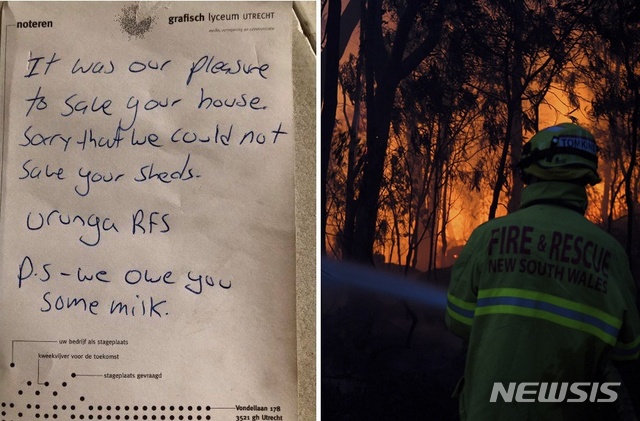 noteren
grafisch lyceum UTRECHT
It was our pleasure
to save your house.
Sorry that we could not
save your sheds.
Urunga RFS
P.S - we owe you
some milk.
uw bedrijf als stageplaats
kweekvijver voor de toekomst
stageplaats gevraagd
Vondellaan 178
3521 gh Utrecht
FIRE & RESCUE
NEW SOUTH WALES
NEWSIS